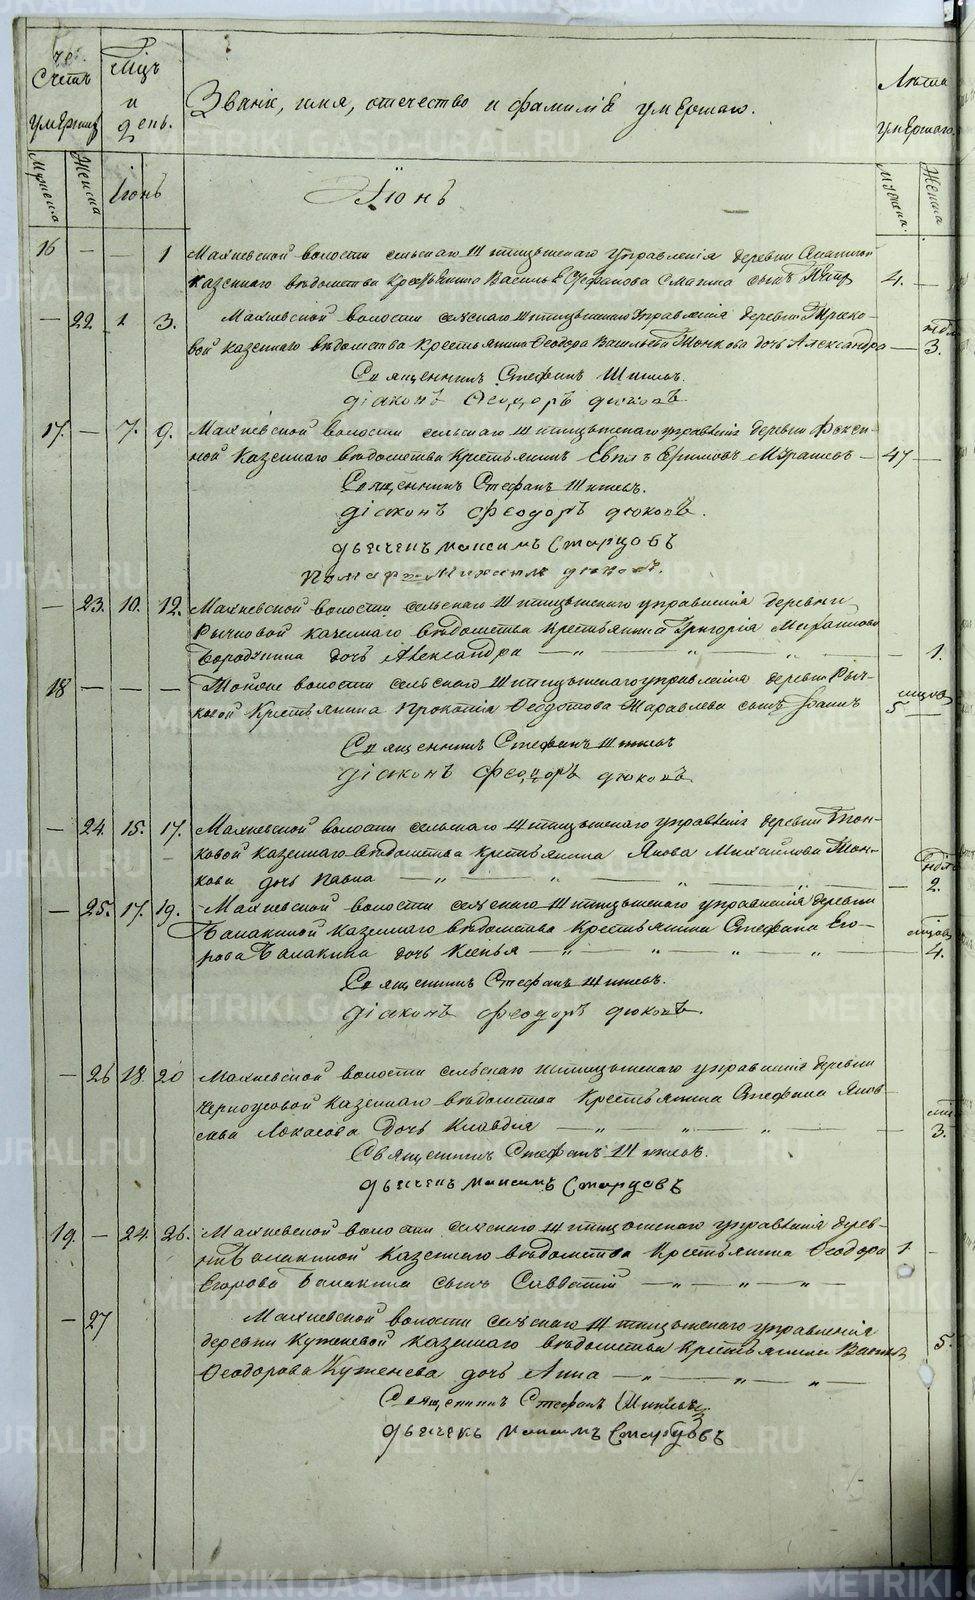 Счетъ
умершихъ
Мѣсяцъ
и
день.
Званіе, имя, отечество и фамиліе умершаго.
Лѣта
умершаго.
Мужеска
Женска
Іюнь
Іюнь
Мужеска.
Женска
16 — — 1 Махневской волости сельскаго Шипицынскаго управленія деревни
казеннаго вѣдомства крестьянина Василья Стефанова сынъ Петръ 4. —
— 22. 1 3. Махневской волости сельскаго Шипицынскаго управленія деревни
вой казеннаго вѣдомства крестьянина Ѳеодора Васильева Тонкова дочь Александра — 3.
Священникъ Стефанъ Шишевъ.
діаконъ Ѳеодоръ дюковъ
17. — 7. 9. Махневской волости сельскаго Шипицынскаго управленія деревни Фокси-
ной казеннаго вѣдомства крестьянинъ Ефимовъ — 47 —
Священникъ Стефанъ Шишевъ.
діаконъ Феодоръ дюковъ.
дьячекъ максимъ Старцовъ
Михаилъ
— 23. 10. 12. Махневской волости сельскаго Шипицынскаго управленія деревни
Рычковой казеннаго вѣдомства крестьянина Григорія
Бородулина дочь Александра — „ — „ — „ — 1.
18 — — — Тойже волости сельскаго Шипицынскаго управленія деревни Рыч-
ковой крестьянина Прокопія Ѳеодотова Жаравлева сынъ Іоаннъ 5
Священникъ Стефанъ Шишевъ
діаконъ феодоръ дюковъ
— 24. 15. 17. Махневской волости сельскаго Шипицынскаго управленія деревни Тон-
ковой казеннаго вѣдомства крестьянина Якова Михайлова Тон-
кова дочь — „ — „ — „ — „ — 2.
— 25. 17. 19. Махневской волости сельскаго Шипицынскаго управленія деревни
Балакиной казеннаго вѣдомства крестьянина Стефана Его-
рова Балакина дочь Ксенья — „ — „ — „ — „ — 4.
Священникъ Стефанъ Шишевъ.
діаконъ феодоръ дюковъ.
— 26 18. 20 Махневской волости сельскаго Шипицынскаго управленія деревни
Черноусовой казеннаго вѣдомства крестьянина Стефана Яков-
лева дочь Клавдія — „ — „ — „ — 3.
Священникъ Стефанъ Шишевъ.
дьячекъ максимъ Старцовъ
19. — 24. 26. Махневской волости сельскаго Шипицынскаго управленія дерев-
ни Балакиной казеннаго вѣдомства крестьянина Ѳеодора 1 —
Егорова Балакина сынъ Савватій — „ — „ — „ —
— 27 Махневской волости сельскаго Шипицынскаго управленія
деревни Куженевой казеннаго вѣдомства крестьянина 5.
Ѳеодорова Куженева дочь Анна — „ — „ — „ —
Священникъ Стефанъ Шишевъ
дьячекъ максимъ Старцовъ
METRIKI.GASO-URAL.RU